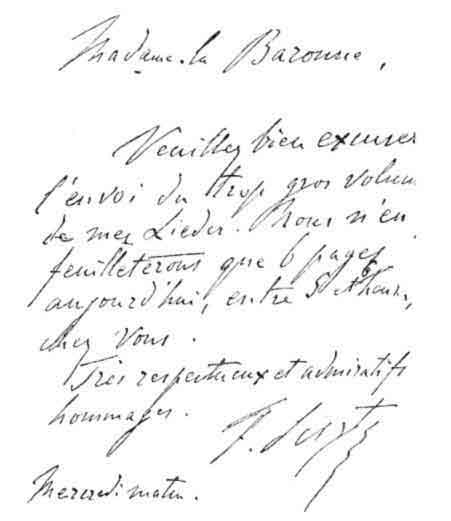 Madame la Baronne,
Veuillez bien excuser
l'envoi du trop gros volum
de mes Lieder. Nous n'en
feuilleterons que 6 pages
aujourd'hui, entre 5 et 6 heures,
chez Vous.
Très respectueux et admiratifs
hommages.
F. Liszt
Mercredi matin.